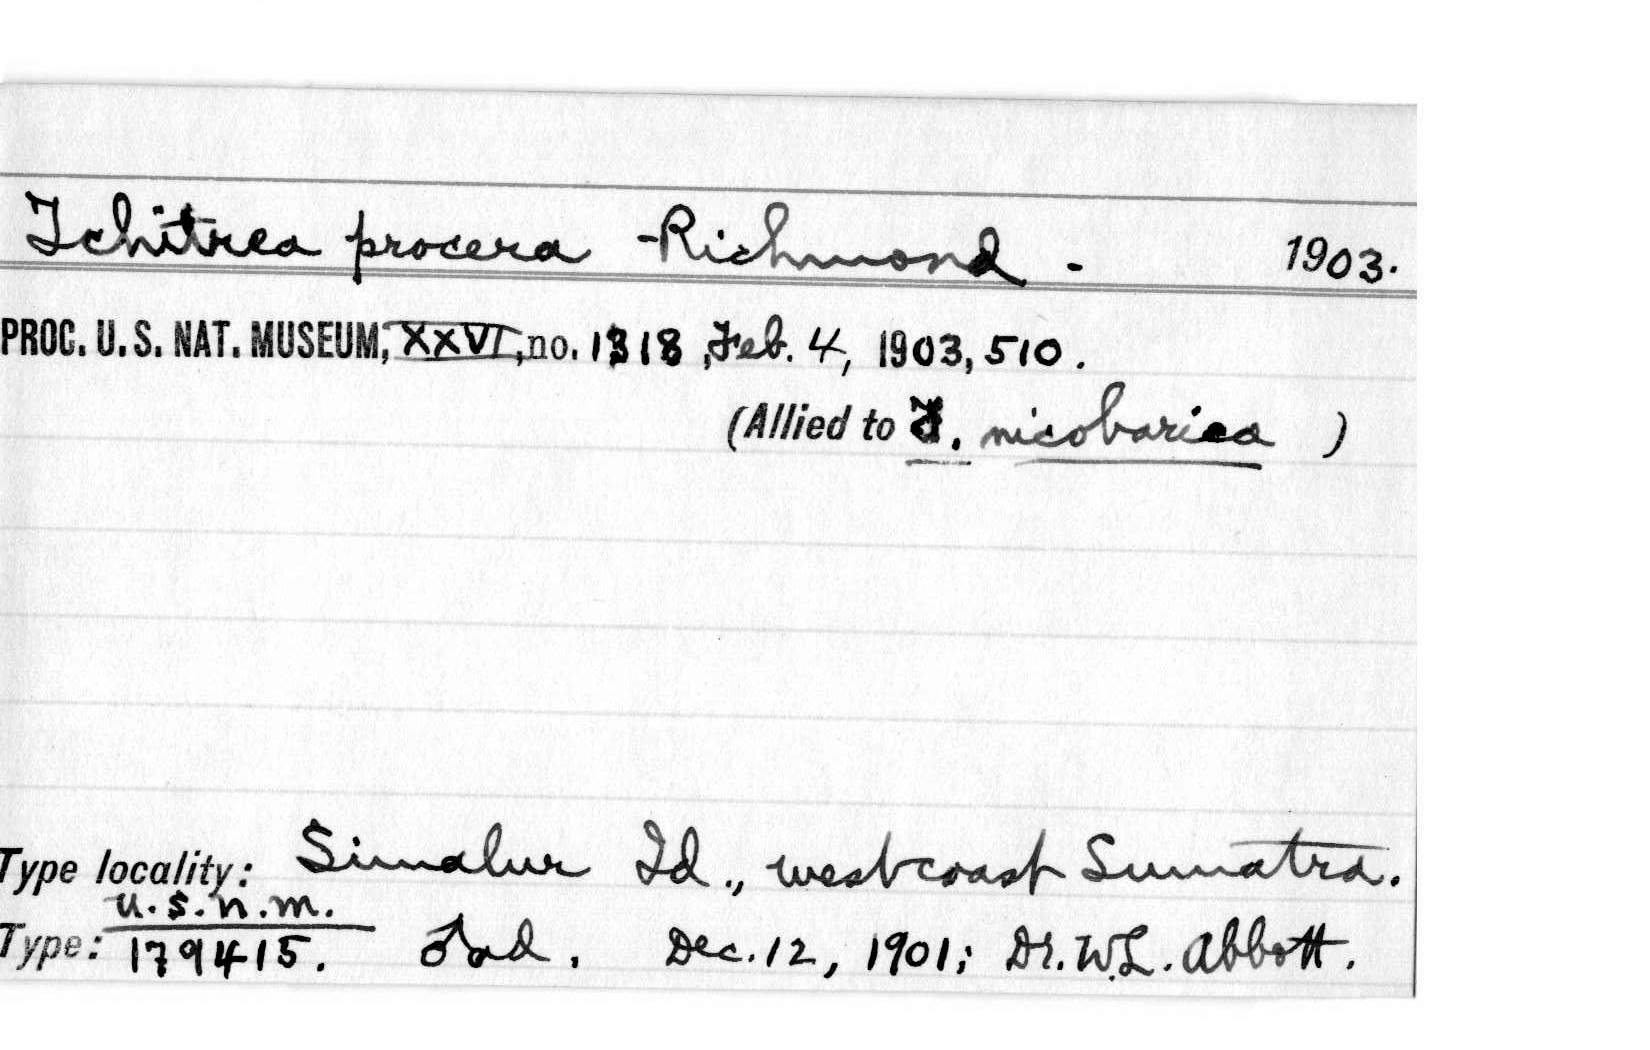 Tchitrea procera Richmond - 1903.
PROC. U. S. NAT. MUSEUM, XXVI, no. 1318, Feb. 4, 1903, 510.
(Allied to T. nicobarica )
Type locality: Simalur Id., west coast Sumatra.
U.S.N.M.
Type: 179415. ♂ ad. Dec. 12, 1901; Dr. W. L. Abbott.